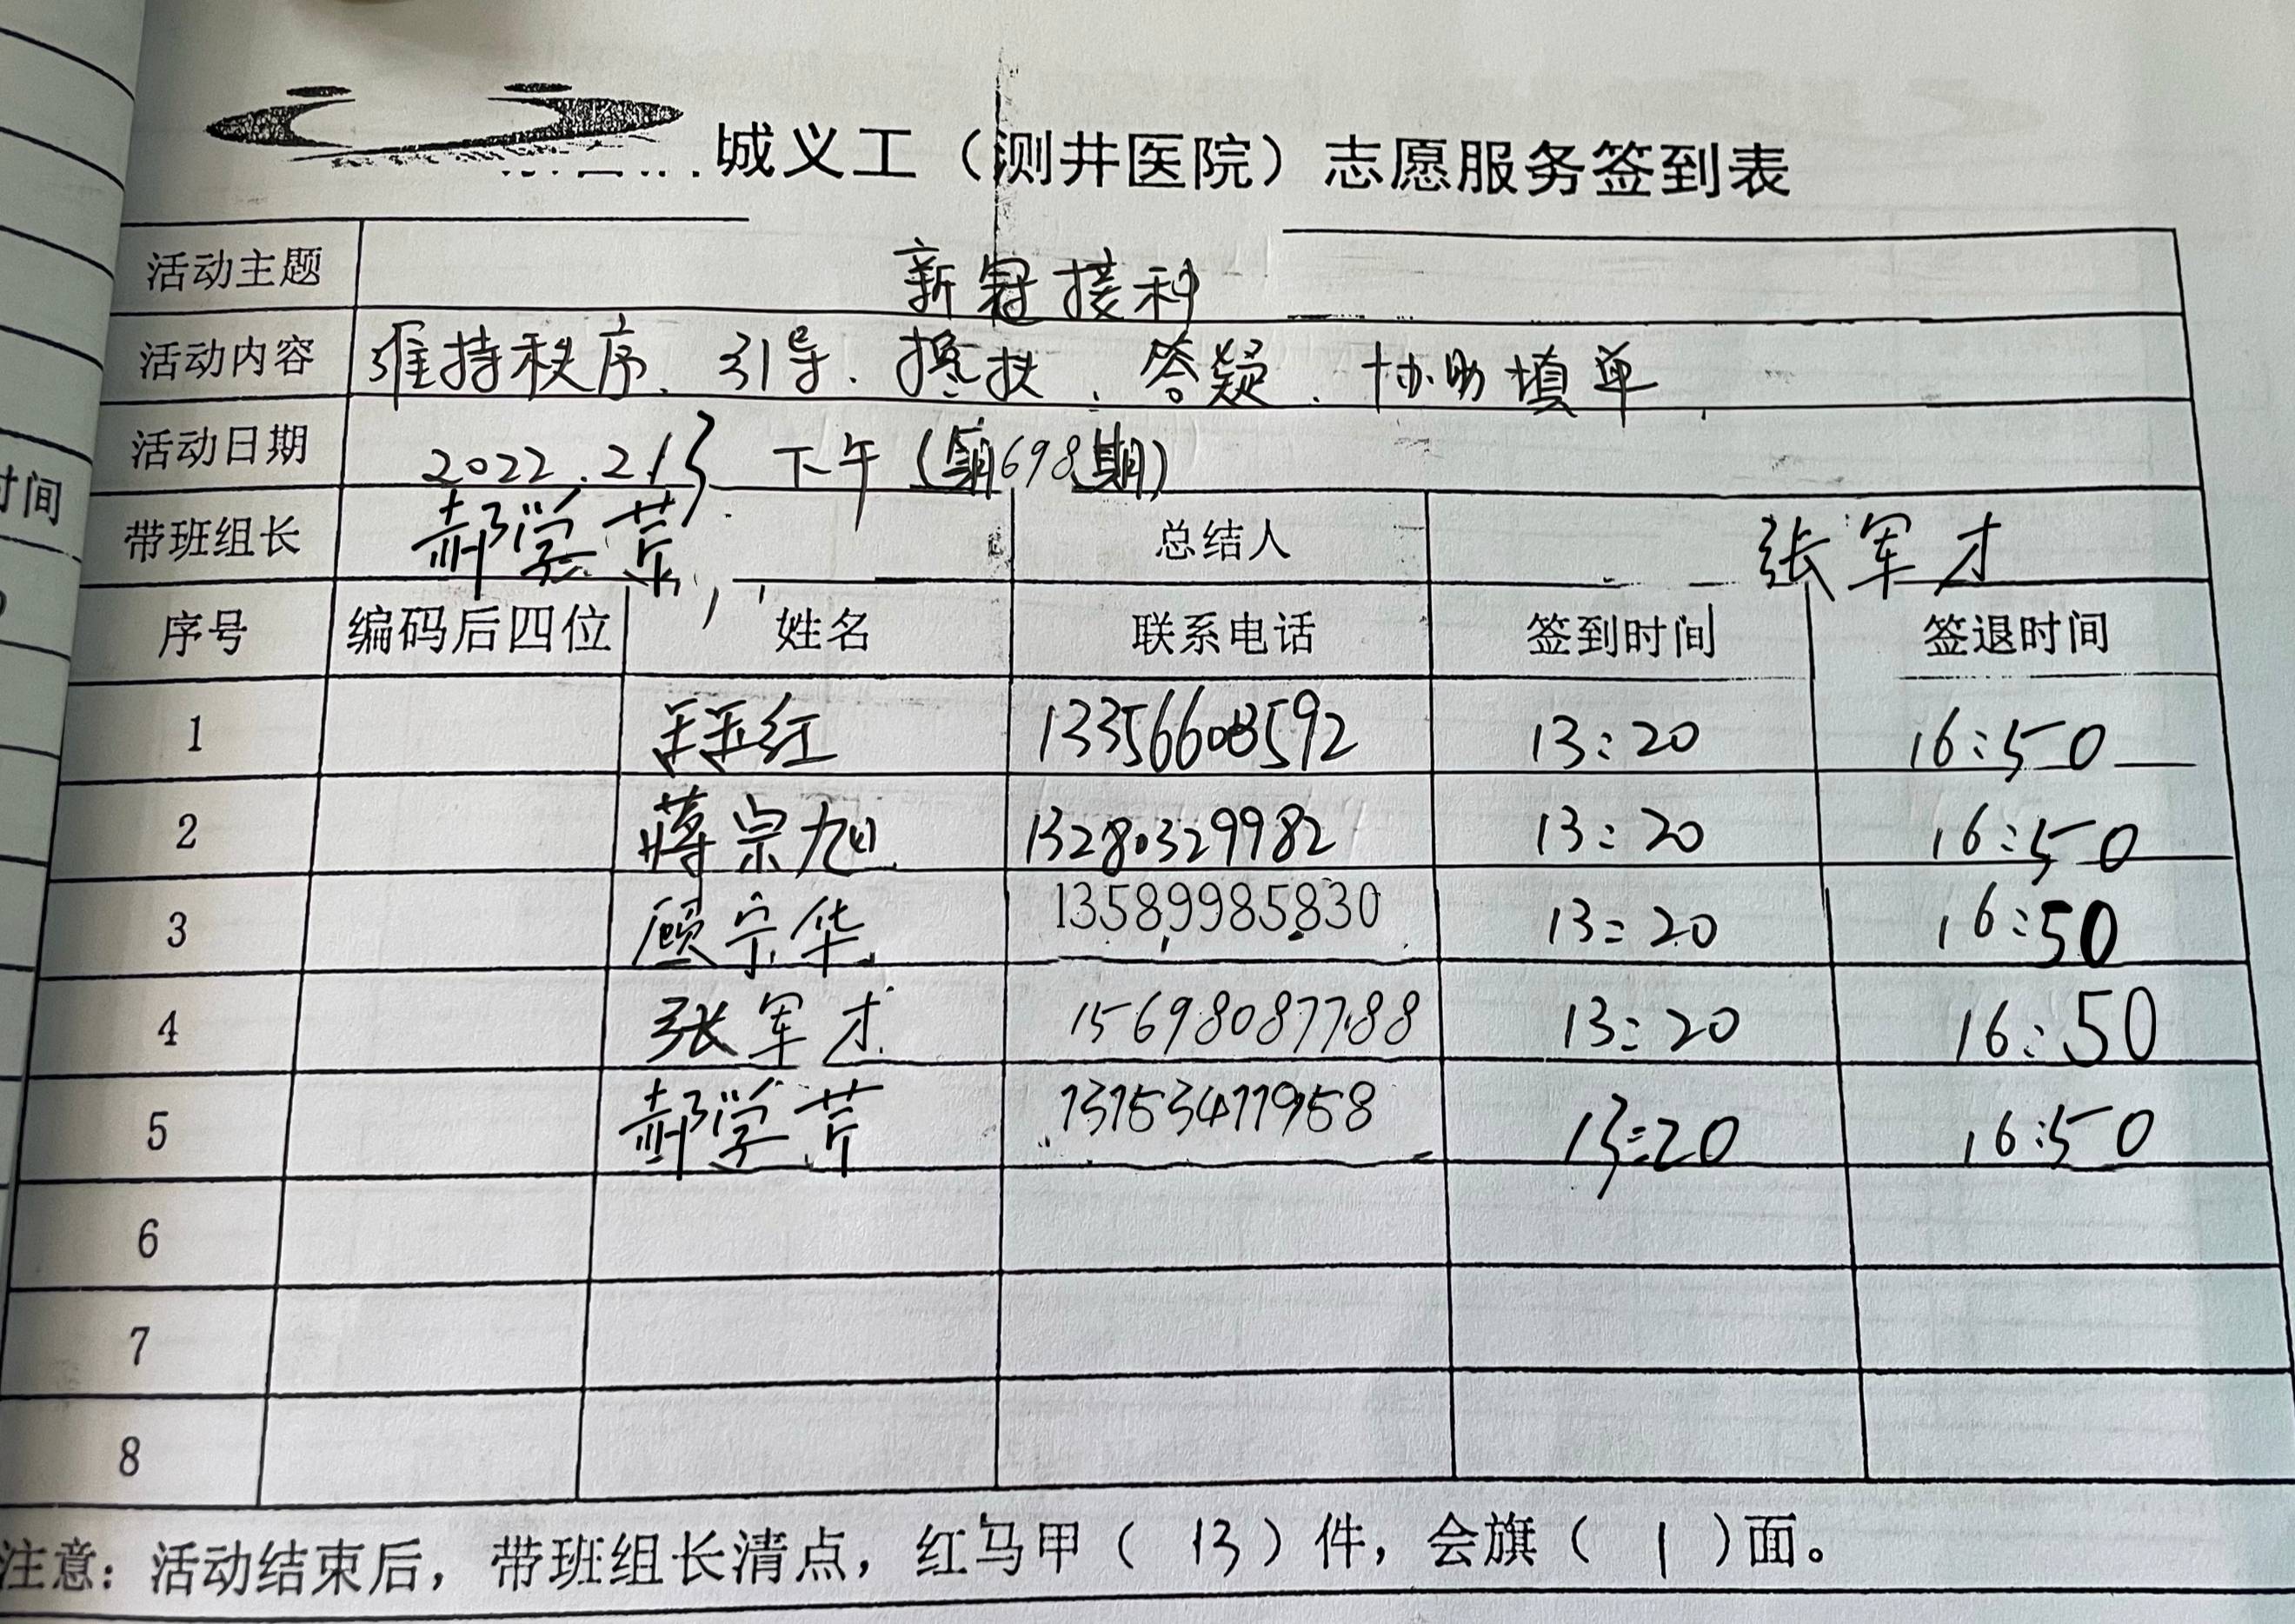 城义工（测井医院）志愿服务签到表
活动主题 新冠接种
活动内容 维持秩序、引导、搀扶、答疑、协助填单
活动日期 2022.2.13 下午（第698期）
时间
带班组长 郝学芹 总结人 张军才
序号 编码后四位 姓名 联系电话 签到时间 签退时间
1 红 13:20 16:50
2 蒋宗旭 13280329982 13:20 16:50
3 顾宗华 13589985830 13:20 16:50
4 张军才 15698087788 13:20 16:50
5 郝学芹 13153411958 13:20 16:50
6
7
8
注意：活动结束后，带班组长清点，红马甲（ 13 ）件，会旗（ 1 ）面。